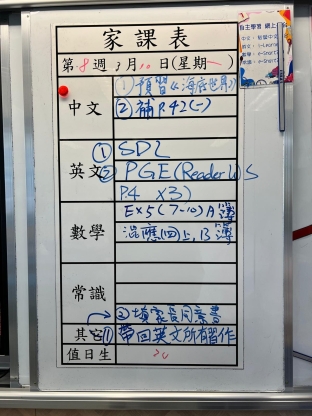 家課表
第8週3月10日(星期一)
中文
①預習《海底世界》
②補P.42(一)
英文
① SDL
② PGE(Reader WS
P.4 X3)
數學
EX5(7-10)A簿
混應(四)上,B簿
常識
其它
②填家長同意書
①帶回英文所有習作
值日生